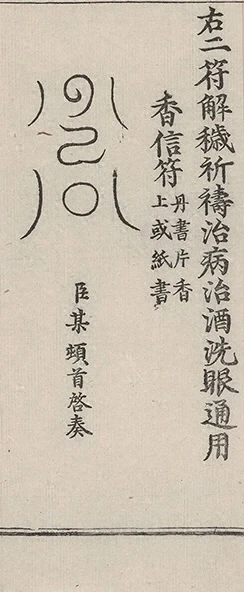 右二符解穢祈禱治病治酒洗眼通用
香信符丹書片香上或紙書
臣某頓首啓奏